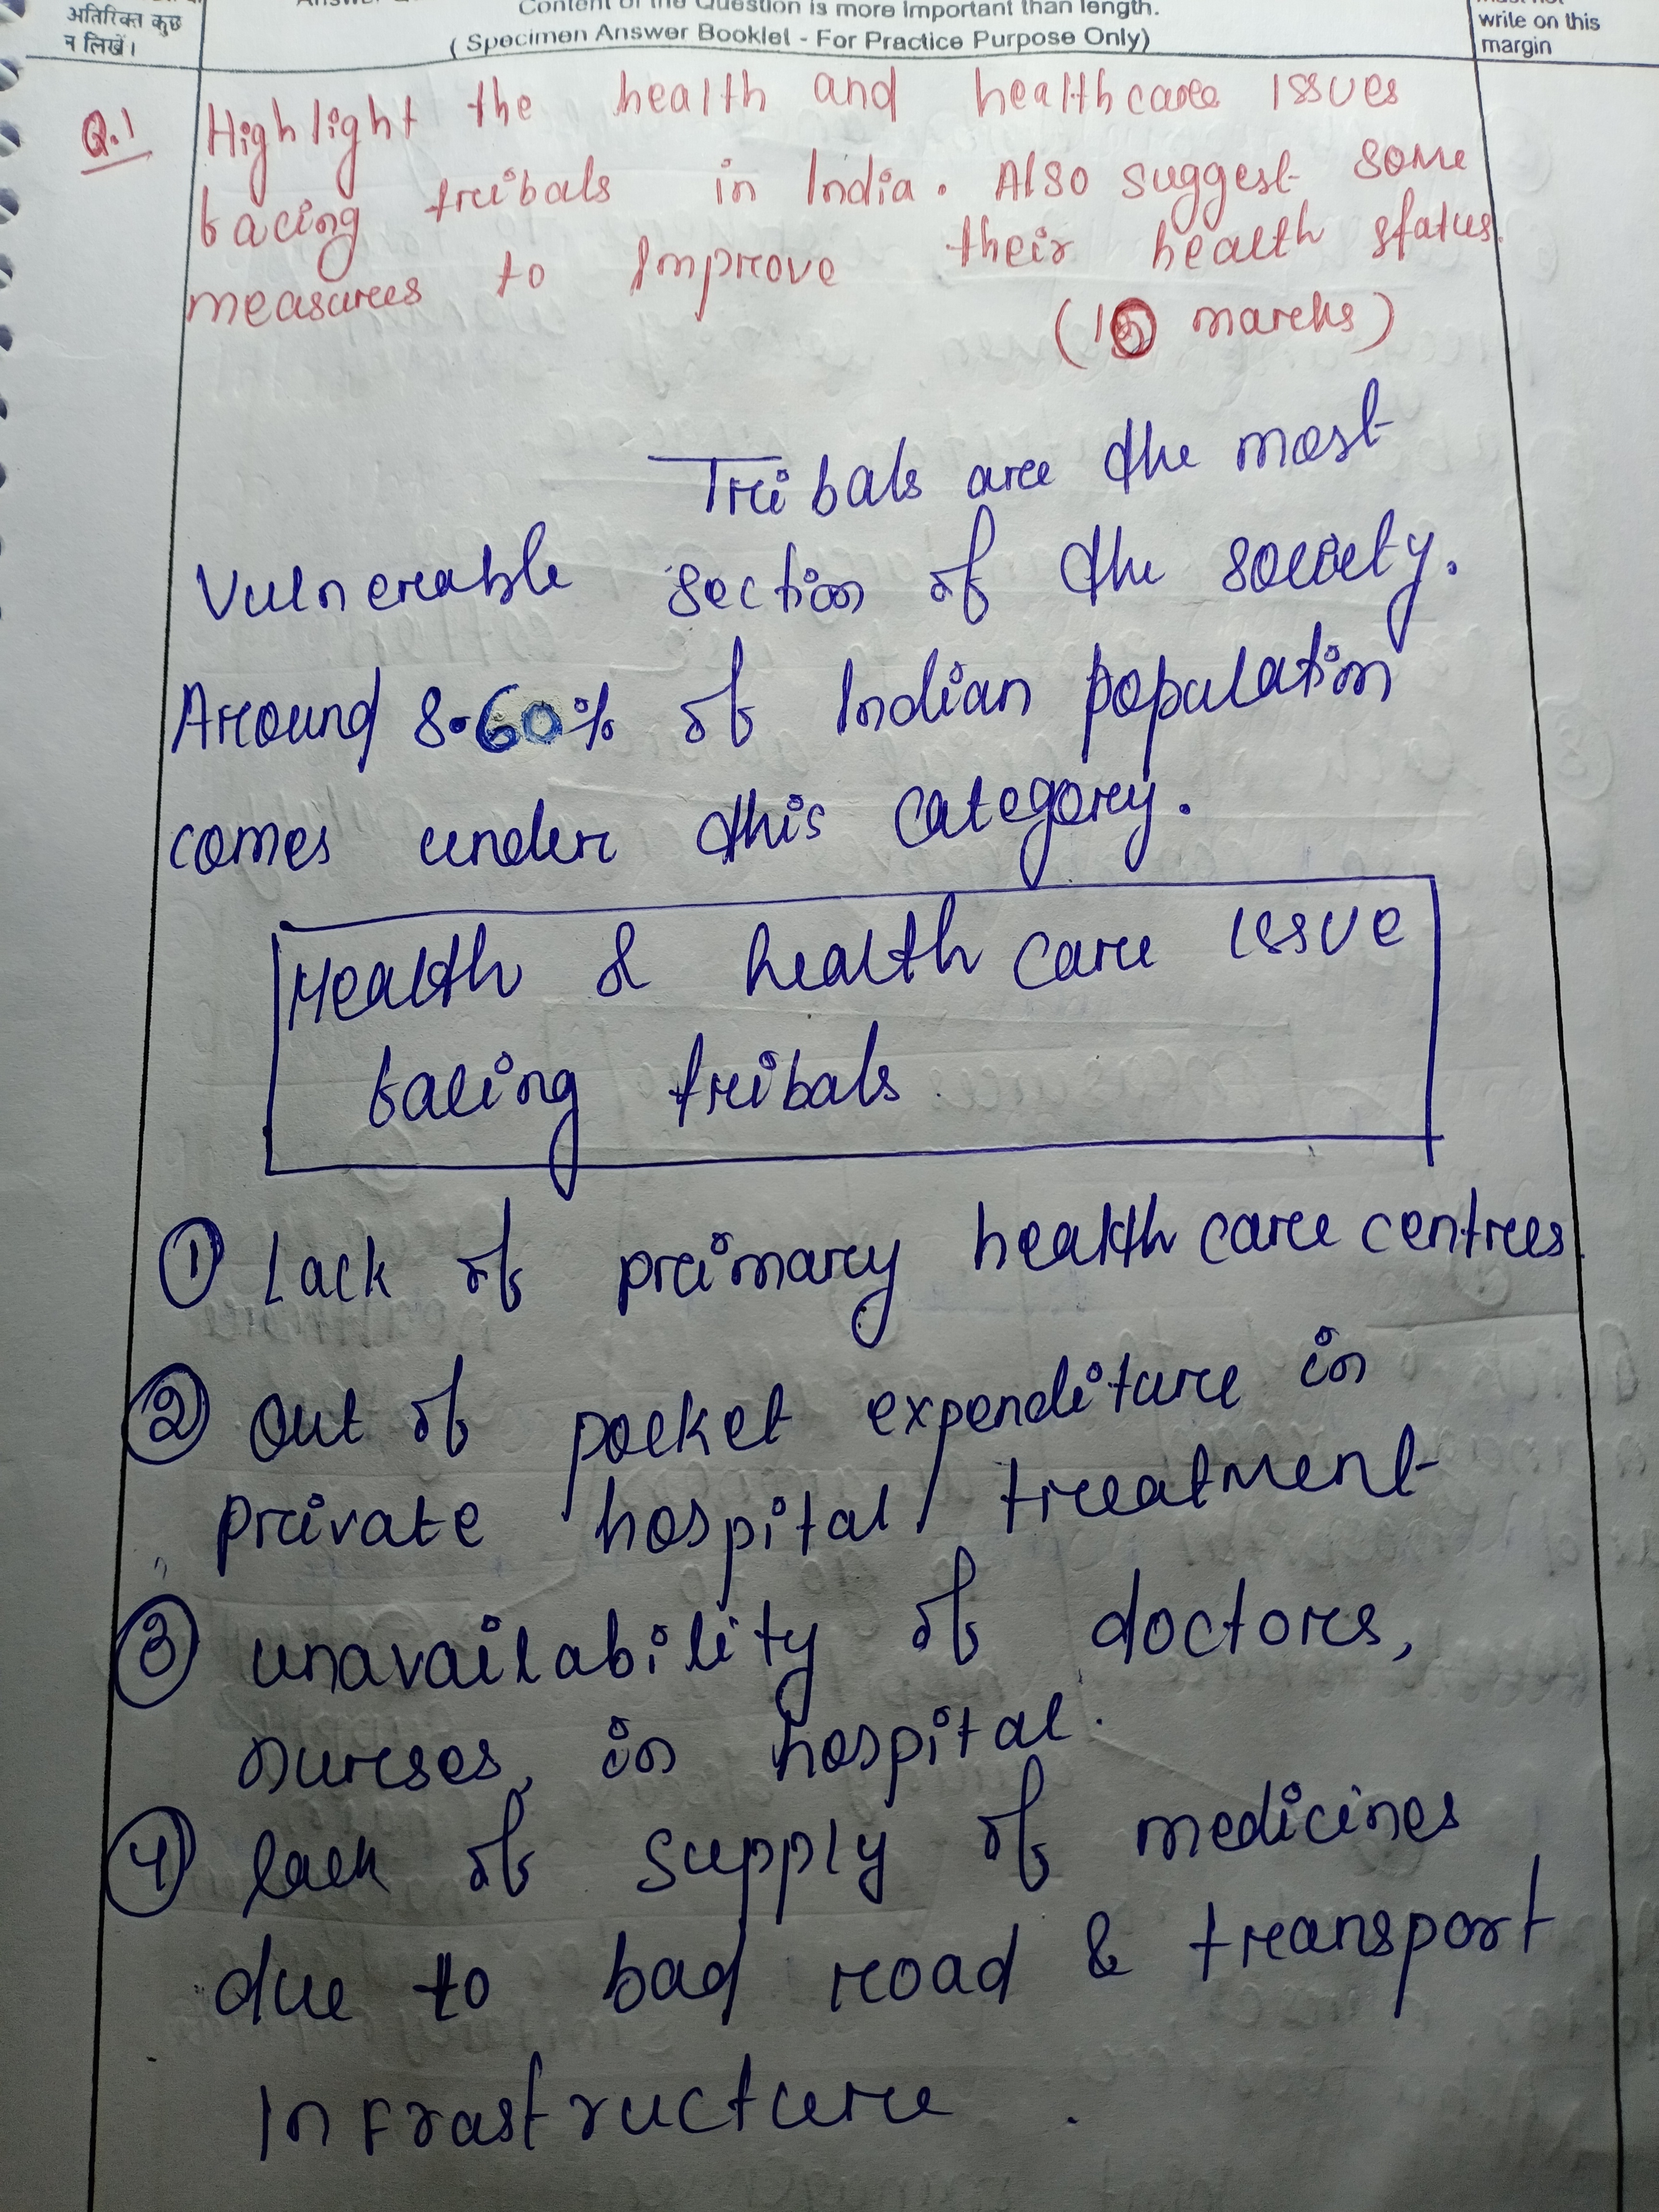 अतिरिक्त कुछ
न लिखें।
Content of the Question is more important than length.
( Specimen Answer Booklet - For Practice Purpose Only)
write on this
margin
Q.1 Highlight the health and healthcare issues
facing tribals in India. Also suggest some
measures to improve their health status.
(15 marks)
Tribals are the most
vulnerable section of the society.
Around 8.60% of Indian population
comes under this category.
Health & health care issue
facing tribals
① Lack of primary health care centres.
② Out of pocket expenditure in
private hospital/treatment
③ unavailability of doctors,
nurses, in hospital.
④ lack of supply of medicines
due to bad road & transport
infrastructure.